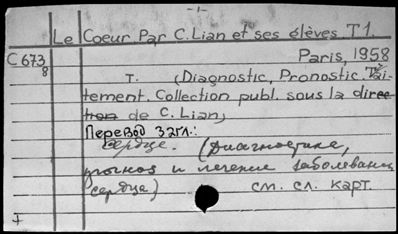 -1-
Le Coeur. Par C. Lian et ses élèves. T1.
C 673
8
Paris, 1958
т. (Diagnostic, Pronostic. Trai-
tement. Collection publ. sous la direc-
tion de C. Lian)
Перевод загл.:
Сердце. (Диагностика,
прогноз и лечение заболевани
сердца) см. сл. карт.
I